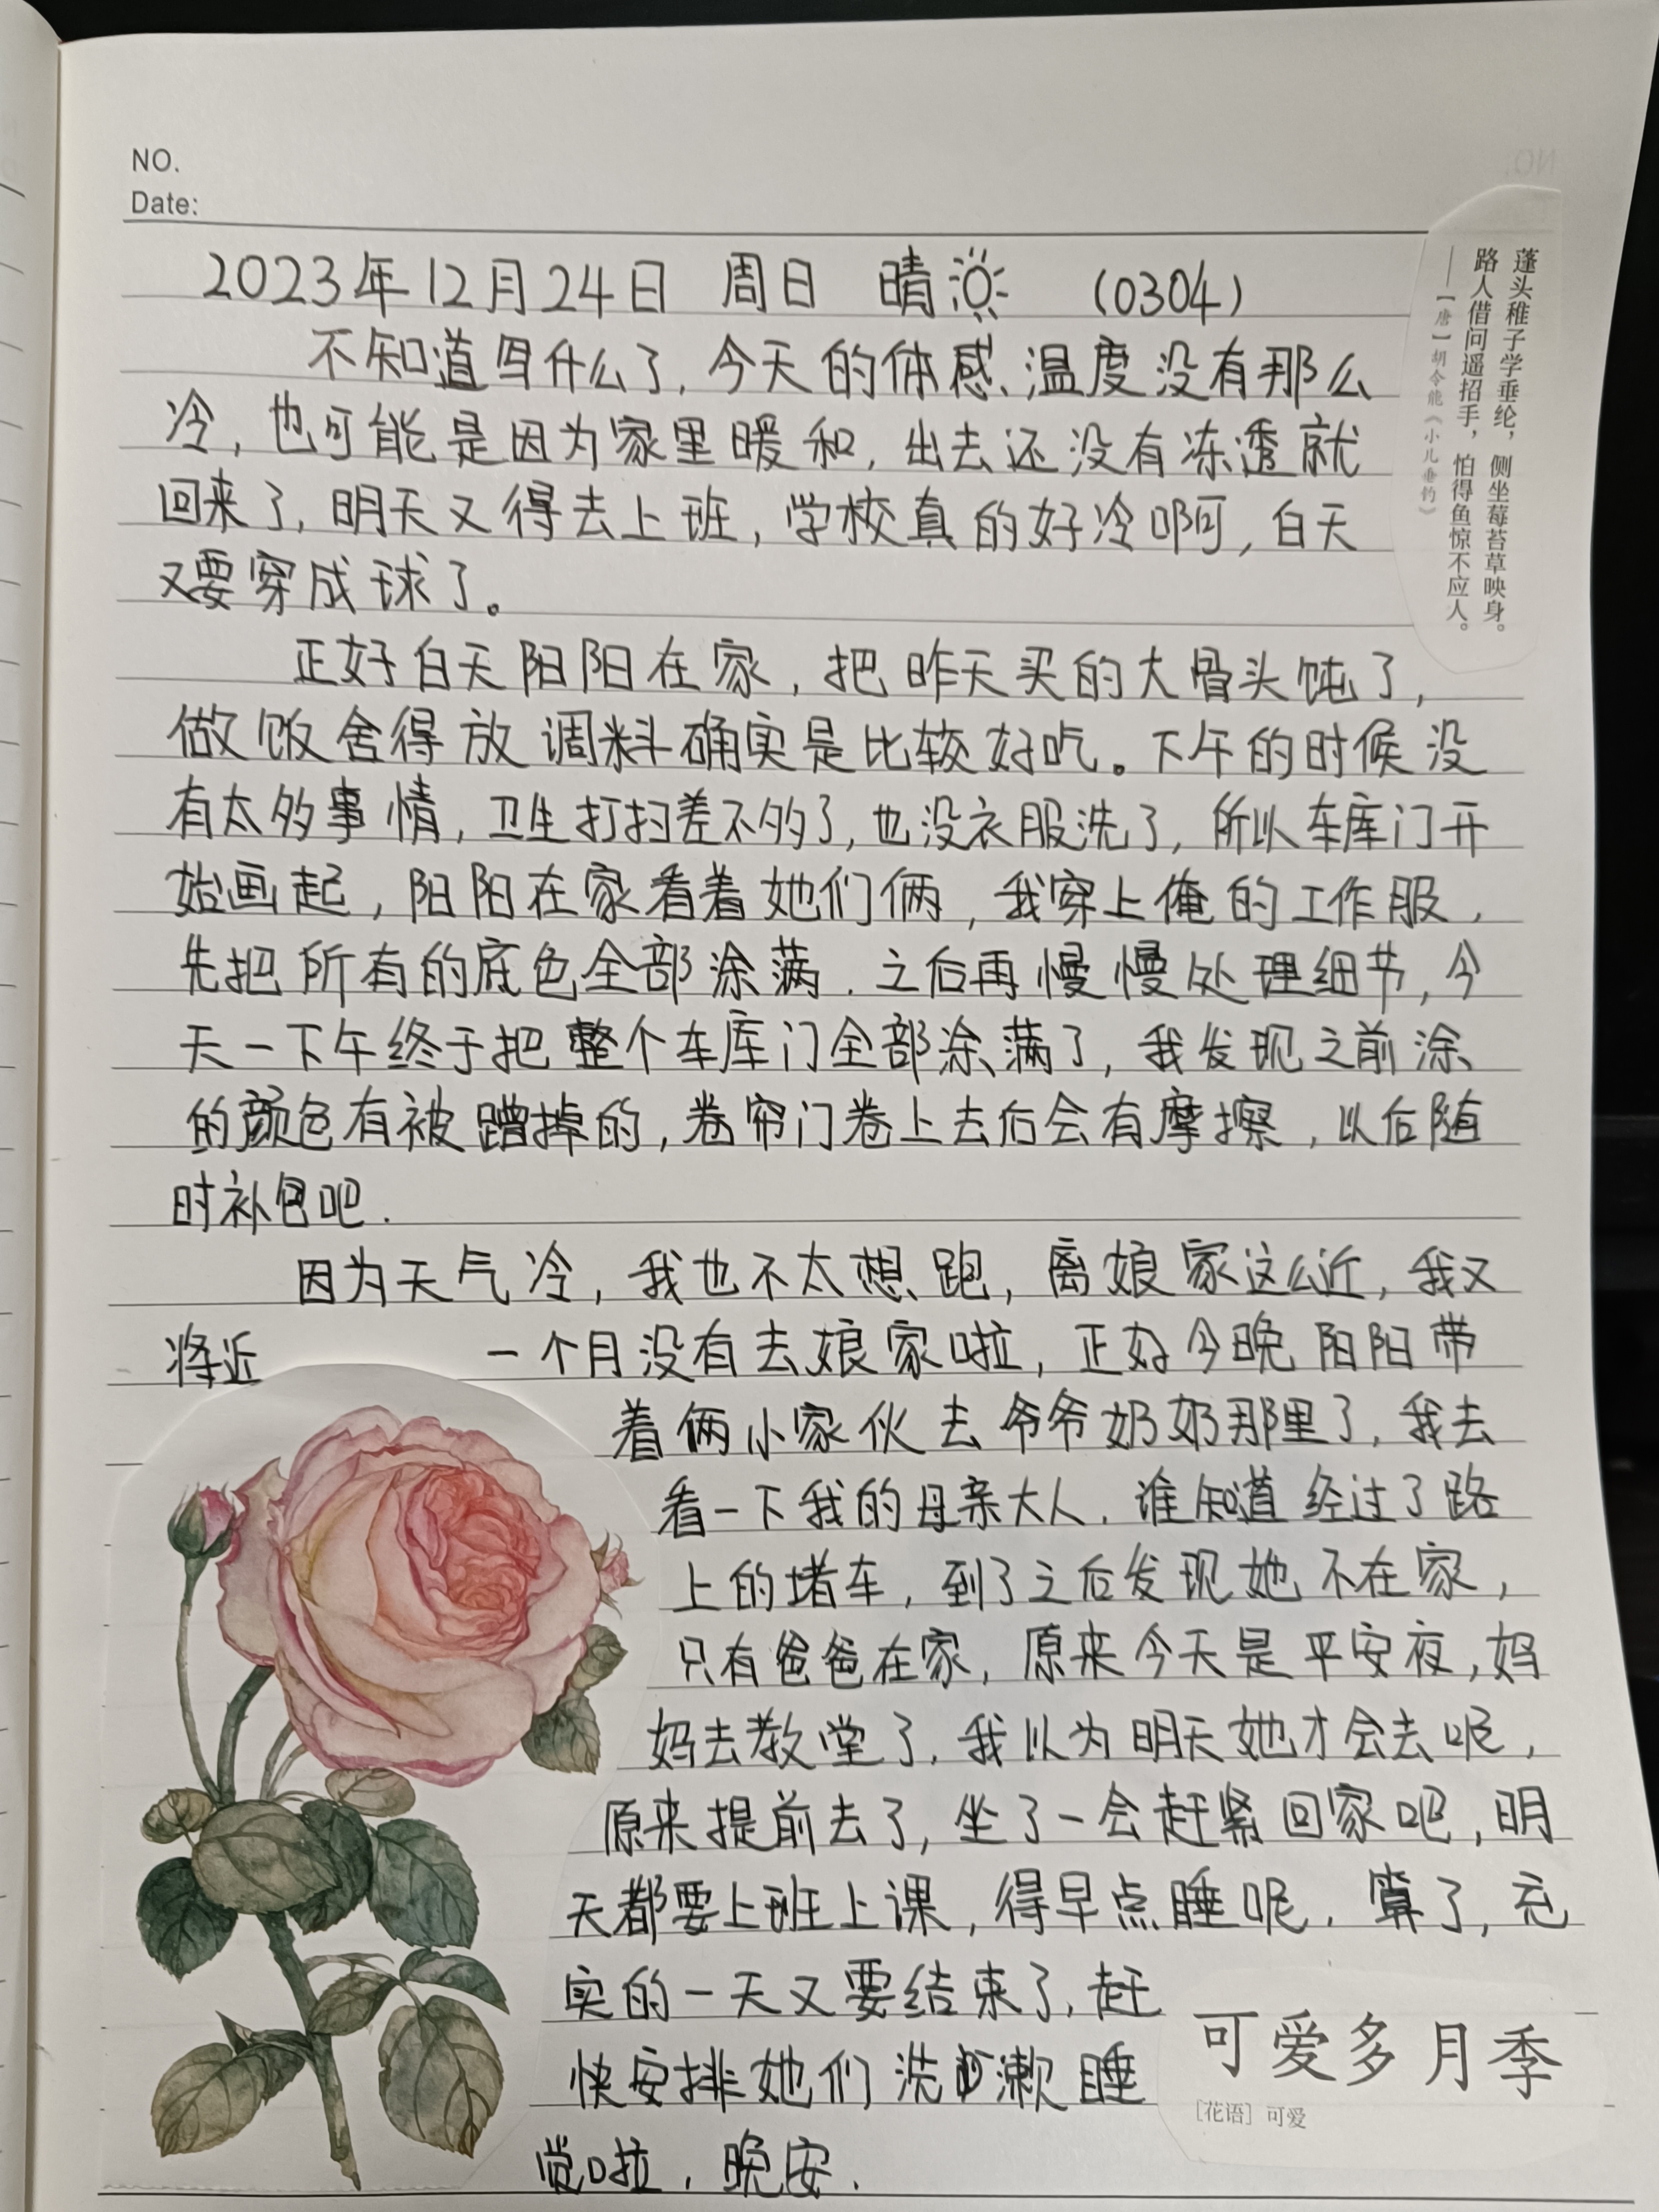 NO.
Date:
2023年12月24日 周日 晴 (0304)
不知道写什么了,今天的体感温度没有那么
冷,也可能是因为家里暖和,出去还没有冻透就
回来了,明天又得去上班,学校真的好冷啊,白天
又要穿成球了。
正好白天阳阳在家,把昨天买的大骨头炖了,
做饭舍得放调料确实是比较好吃。下午的时候没
有太多事情,卫生打扫差不多了,也没衣服洗了,所以车库门开
始画起,阳阳在家看着她们俩,我穿上俺的工作服,
先把所有的底色全部涂满.之后再慢慢处理细节,今
天一下午终于把整个车库门全部涂满了,我发现之前涂
的颜色有被蹭掉的,卷帘门卷上去后会有摩擦,以后随
时补色吧.
因为天气冷,我也不太想跑,离娘家这么近,我又
将近 一个月没有去娘家啦,正好今晚阳阳带
着俩小家伙去爷爷奶奶那里了,我去
看一下我的母亲大人.谁知道经过了路
上的堵车,到了之后发现她不在家,
只有爸爸在家,原来今天是平安夜,妈
妈去教堂了.我以为明天她才会去呢,
原来提前去了,坐了一会赶紧回家吧,明
天都要上班上课,得早点睡呢.算了,充
实的一天又要结束了,赶
快安排她们洗漱睡
觉啦.晚安.
蓬头稚子学垂纶,侧坐莓苔草映身。
路人借问遥招手,怕得鱼惊不应人。
——【唐】胡令能《小儿垂钓》
可爱多月季
[花语] 可爱